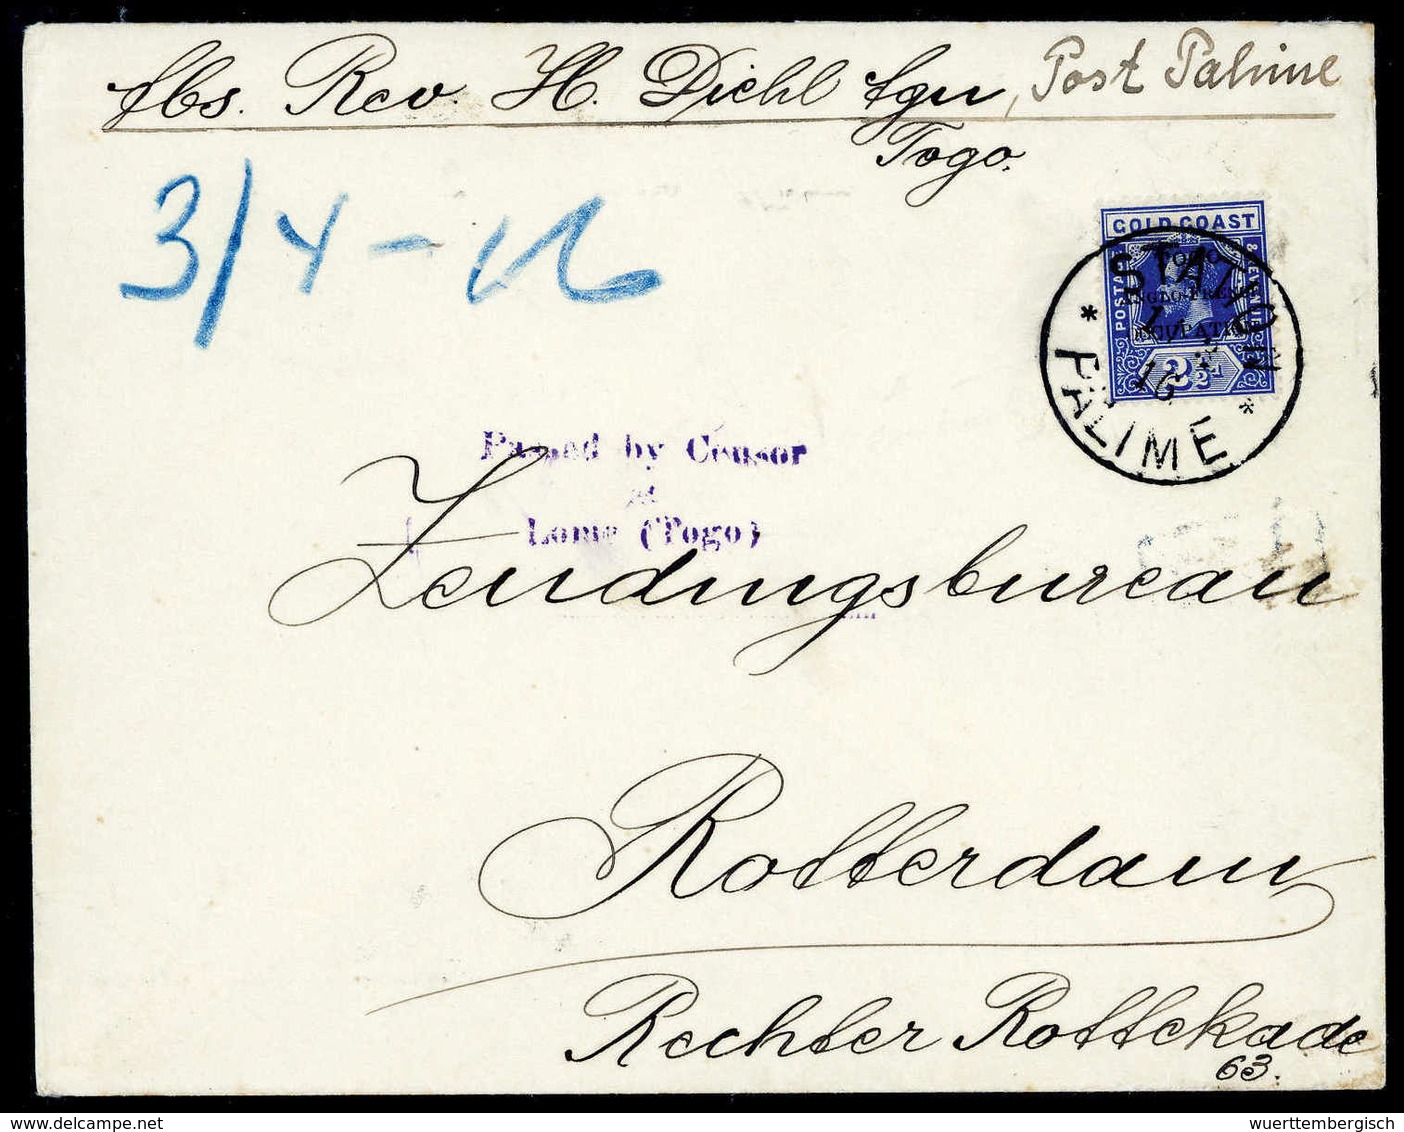 Abs. Rev. H. Diehl Agu, Post Palime
Togo.
3/4-16
GOLD COAST
POSTAGE & REVENUE
TOGO
ANGLO-FRENCH
OCCUPATION
2½d
STATION
16
* PALIME *
Passed by Censor
at
Lome (Togo)
Zendingsbureau
Rotterdam
Rechter Rottekade
63.
delcampe.net
wuerttembergisch